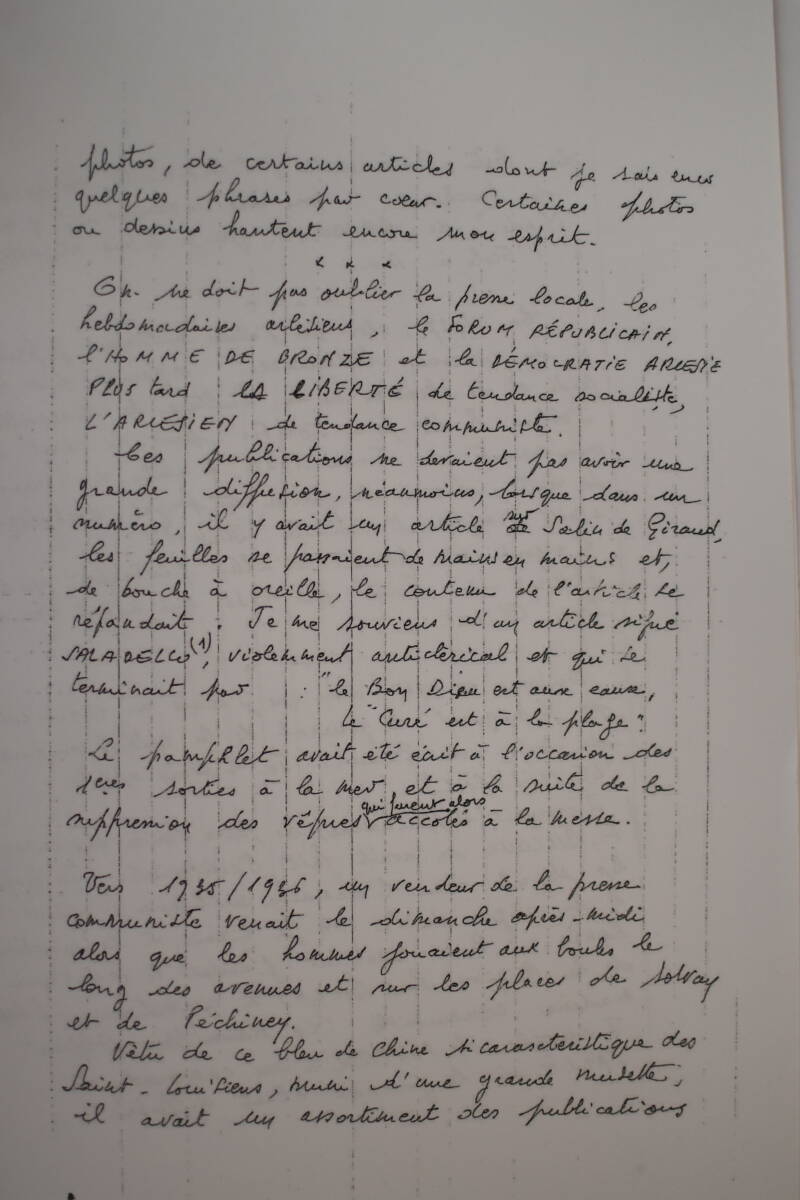 photos, de certains articles dont je sais encor
quelques phrases par cœur. Certaines photos
ou dessins hantent encore mon esprit.
* * *
On ne doit pas oublier la presse locale, les
hebdomadaires arlésiens, le FORUM RÉPUBLICAIN,
l'HOMME DE BRONZE et la DÉMOCRATIE ARLESIE
PLUS tard LA LIBERTÉ de tendance socialiste,
L'ARLESIEN de tendance communiste.
Ces publications ne devaient pas avoir une
grande diffusion, néanmoins, lorsque dans un
numéro, il y avait un article sur Salin de Giraud,
les feuilles se passaient de mains en mains et,
de bouche à oreille, le contenu de l'article se
répandait. Je me souviens d'un article signé
SALADELLO(1), violemment anticlérical et qui se
terminait par : "le Bon Dieu est aux eaux,
Le Curé est à la plage"
Le pamphlet avait été écrit à l'occasion des
1ères sorties à la mer, et à la suite de la
suppression des vêpres qui furent alors accolés à la messe.
Vers 1935/1936, un vendeur de la presse
communiste venait le dimanche après-midi
alors que les hommes jouaient aux boules le
long des avenues et sur les places de Solvay
et de Péchiney.
Vêtu de ce bleu de Chine si caractéristique des
Saint-Louisiens, muni d'une grande musette,
il avait un assortiment des publications